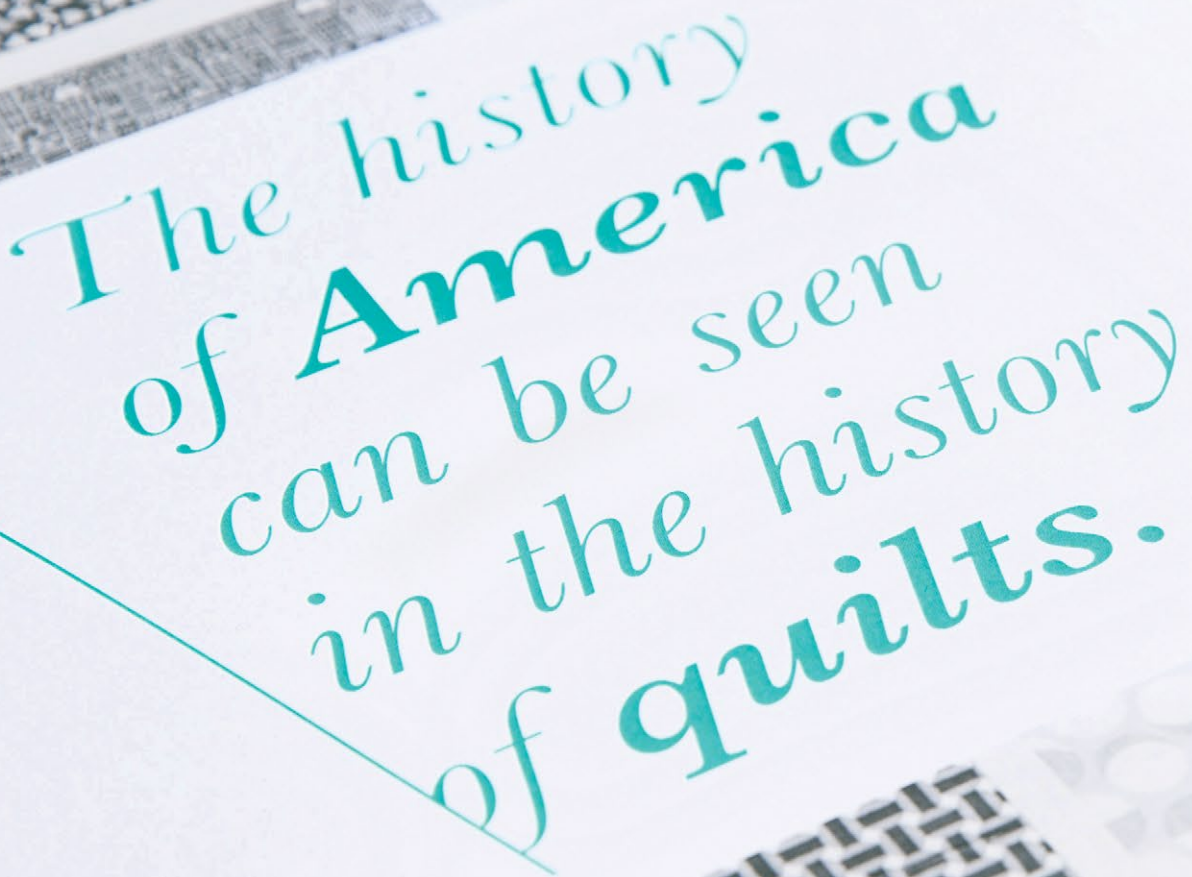 The history
of America
can be seen
in the history
of quilts.